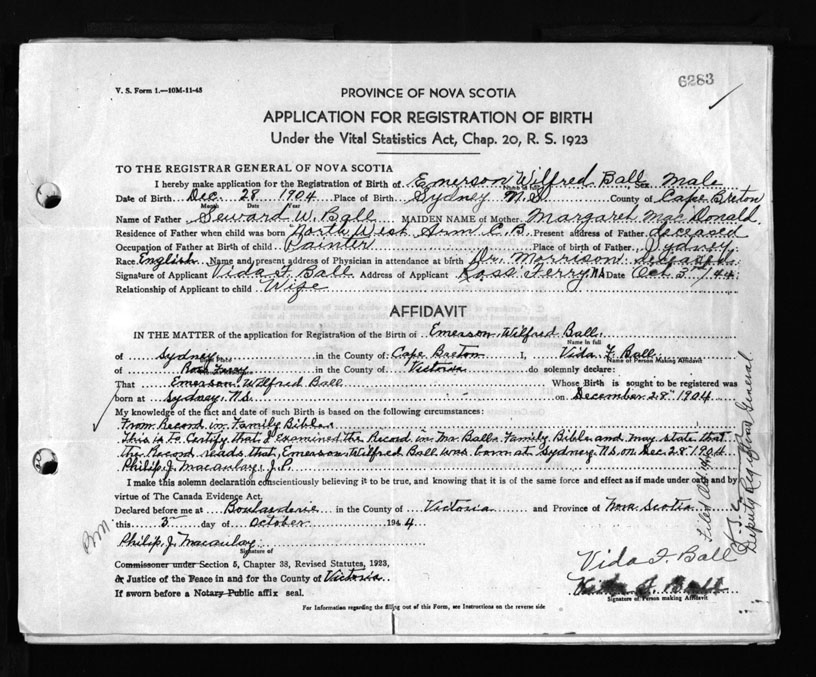 6283
V. S. Form 1.—10M-11-43
PROVINCE OF NOVA SCOTIA
APPLICATION FOR REGISTRATION OF BIRTH
Under the Vital Statistics Act, Chap. 20, R. S. 1923
TO THE REGISTRAR GENERAL OF NOVA SCOTIA
I hereby make application for the Registration of Birth of Emerson Wilfred Ball Sex Male
Name in full
Date of Birth Dec. 28 1904 Place of Birth Sydney N.S. County of Cape Breton
Month Date Year
Name of Father Seward W. Ball MAIDEN NAME of Mother Margaret MacDonald
Residence of Father when child was born North West Arm C.B. Present address of Father deceased
Occupation of Father at Birth of child Painter Place of birth of Father Sydney
Race English Name and present address of Physician in attendance at birth Dr. Morrison deceased
Signature of Applicant Vida F. Ball Address of Applicant Ross Ferry N.S. Date Oct 3rd/44
Relationship of Applicant to child Wife
AFFIDAVIT
IN THE MATTER of the application for Registration of the Birth of Emerson Wilfred Ball
Name in full
of Sydney in the County of Cape Breton I, Vida F. Ball
Birth Place Name of Person Making Affidavit
of Ross Ferry in the County of Victoria do solemnly declare:
That Emerson Wilfred Ball Whose Birth is sought to be registered was
born at Sydney, N.S. on December 28 1904
My knowledge of the fact and date of such Birth is based on the following circumstances:
From Record in Family Bible
This is to Certify that I examined the Record in Mr Balls Family Bible and may state that
the Record reads that Emerson Wilfred Ball was born at Sydney N.S. on Dec 28 1904
Philip J. Macaulay J.P.
I make this solemn declaration conscientiously believing it to be true, and knowing that it is of the same force and effect as if made under oath and by
virtue of The Canada Evidence Act.
Declared before me at Boularderie in the County of Victoria and Province of Nova Scotia
this 3 day of October 1944
Philip J. Macaulay
Signature of
Commissioner under Section 5, Chapter 38, Revised Statutes, 1923,
or Justice of the Peace in and for the County of Victoria
If sworn before a Notary Public affix seal.
Vida F. Ball
Vida F. Ball
Signature of Person making Affidavit
For Information regarding the filling out of this Form, see Instructions on the reverse side
Deputy Registrar General